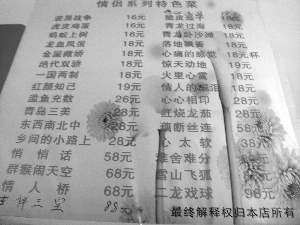 情侣系列特色菜
世界战争 16元
虎皮鸡蛋 16元
蚂蚁上树 18元
龙血凤蛋 18元
金屋藏娇 18元
绝代双骄 18元
一国两制 18元
红颜知己 19元
滥鱼充数 26元
青岛三美 28元
东西南北中 28元
乡间的小路上 28元
悄悄话 58元
群猴闹天空 68元
情人桥 68元
吉祥三宝 88元
18元
青龙过海 18元
青龙卧沙滩 18元
落地飘香 18元
心痛的感觉 18元杯
惊天动地 19元
火里心雷 18元
情人的眼泪 18元
心心相印 28元
红烧龙茄 28元
藕断丝连 58元
心太软 38元
难舍难分
雪山飞狐
二龙戏球 98元
最终解释权归本店所有